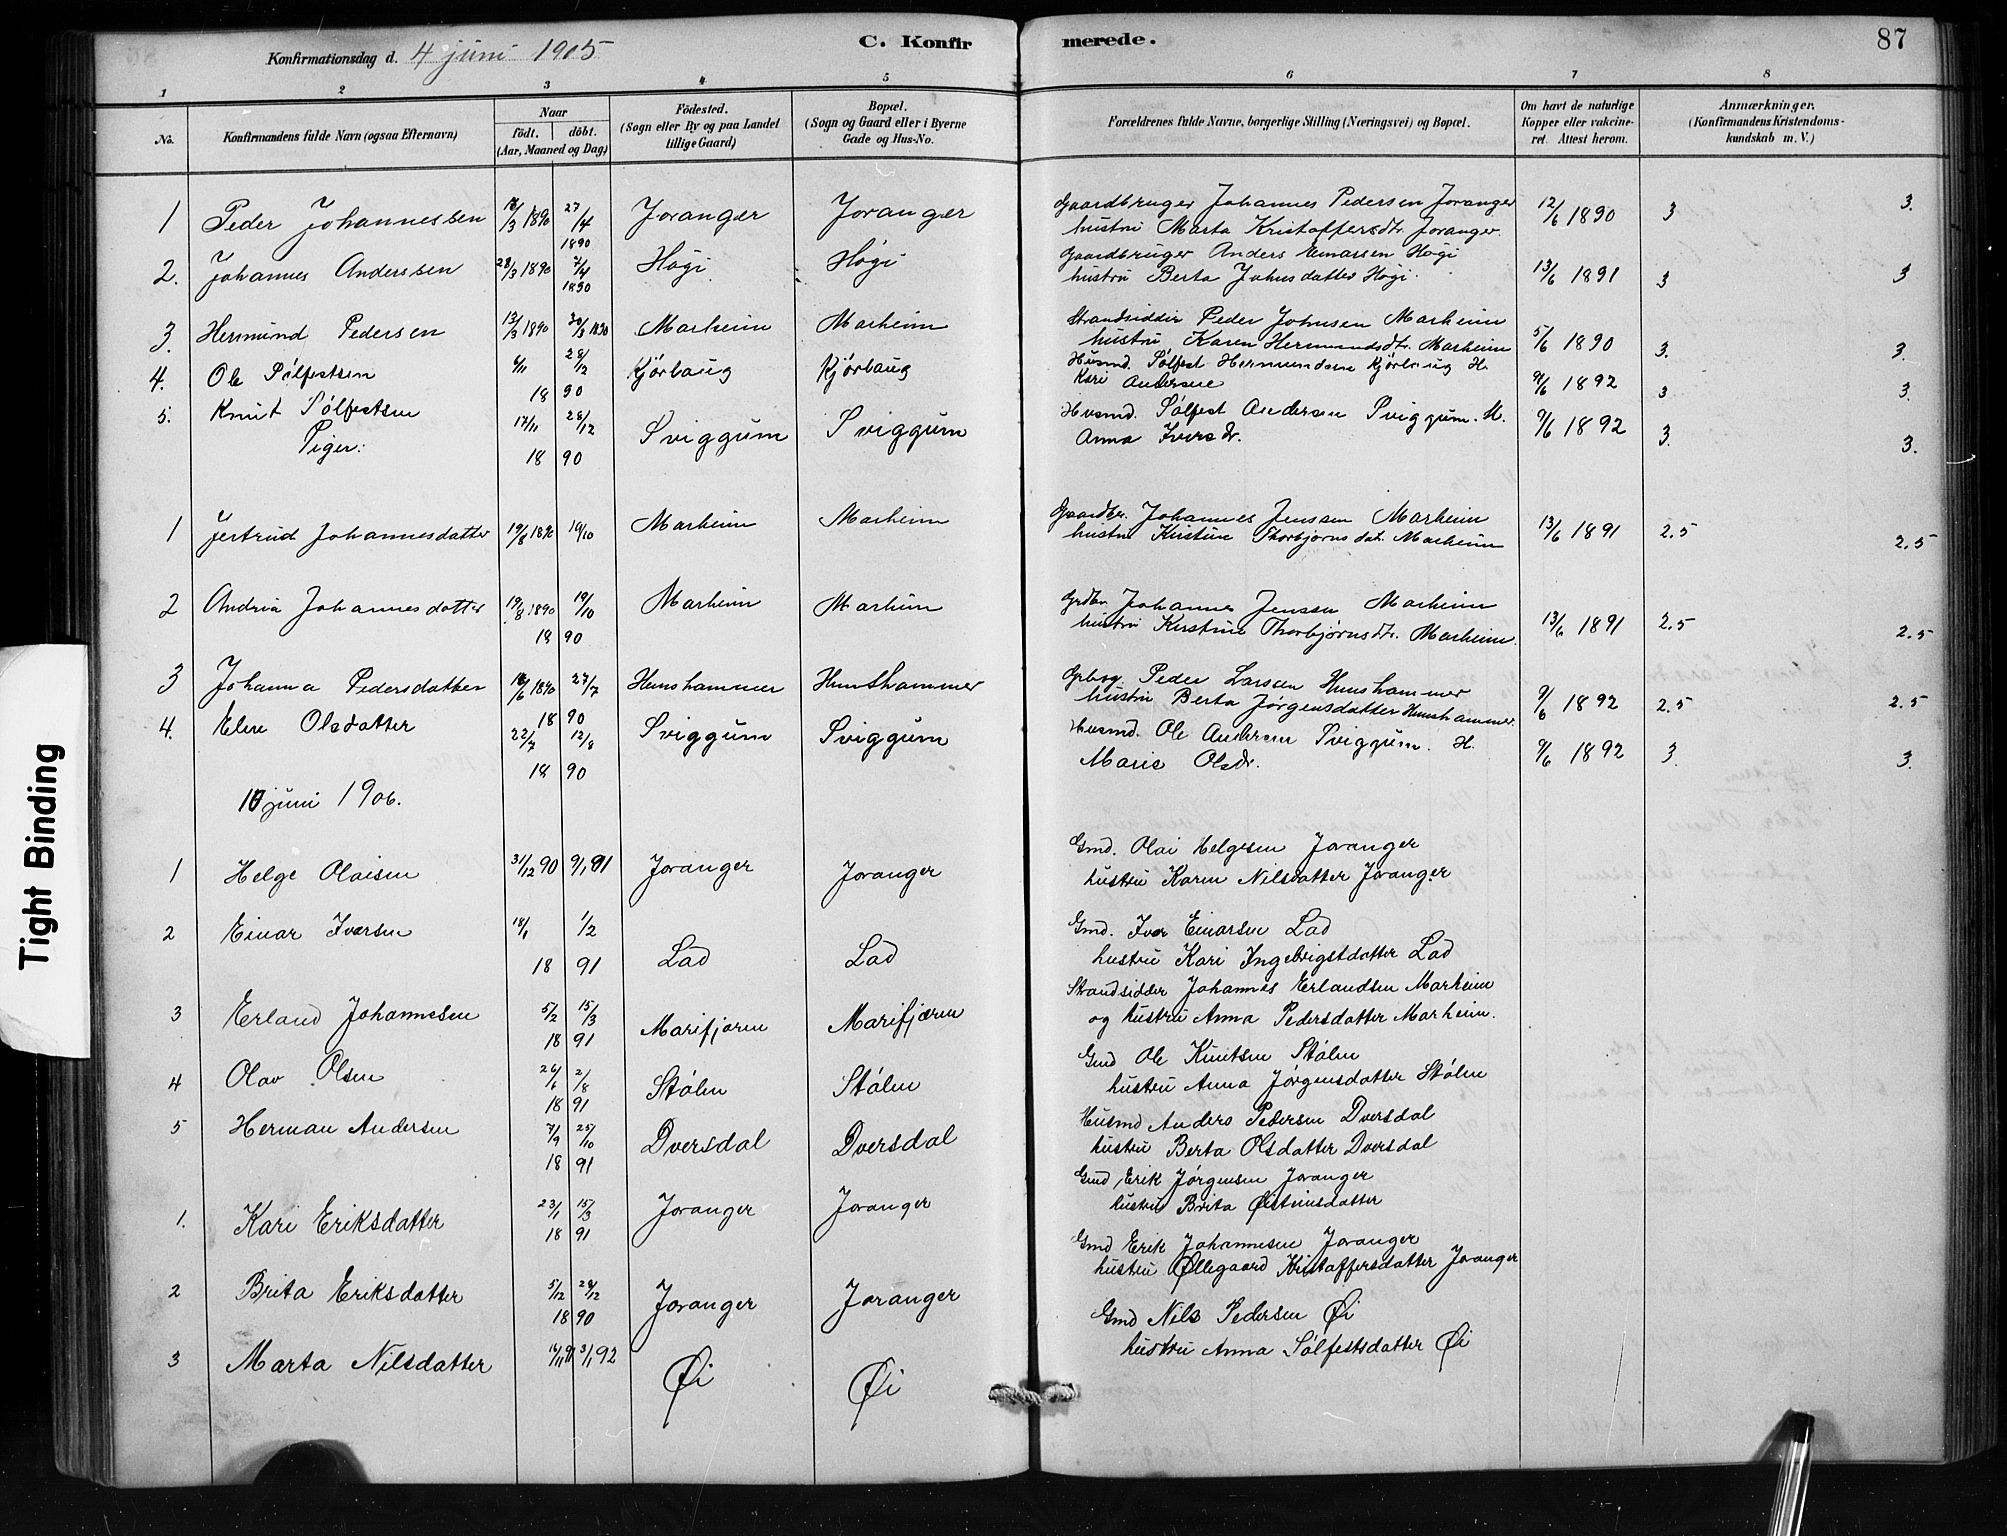 C. Konfirmerede.
87
Konfirmationsdag d. 4 juni 1905
1 2 3 4 5 6 7 8
No.
Konfirmandens fulde Navn (ogsaa Efternavn)
Naar
födt. döbt.
(Aar, Maaned og Dag)
Födested.
(Sogn eller By og paa Landet
tillige Gaard)
Bopæl.
(Sogn og Gaard eller i Byerne
Gade og Hus-No.
Forældrenes fulde Navne, borgerlige Stilling (Næringsvei) og Bopæl.
Om havt de naturlige
Kopper eller vakcine-
ret. Attest herom.
Anmærkninger.
(Konfirmandens Kristendoms-
kundskab m. V.)
1 Peder Johannessen /3 1890 27/4 1890 Joranger Joranger Gaardbruger Johannes Pedersen Joranger
hustru Marta Kristoffersdtr. Joranger. 12/6 1890 3 3.
2. Johannes Anderssen 28/3 1890 7/4 1890 Høgi Høgi Gaardbruger Anders Einarsen Høgi
hustru Berta Johnsdatter Høgi. 13/6 1891 3 3
3. Hermund Pedersen 13/3 1890 30/3 1890 Marheim Marheim Strandsidder Peder Johnsen Marheim
hustru Karen Hermundsdtr. Marheim 5/6 1890 3. 3.
4. Ole Sølfestsen 6/11 28/12 1890 Kjørlaug Kjørlaug Husmd. Sølfest Hermundsen Kjørlaug H.
Kari Andersne 9/6 1892 3 3.
5. Knut Sølfestsen 17/11 28/12 1890 Sviggum Sviggum Husmd. Sølfest Andersen Sviggum. H.
Anna Iversdr. 9/6 1892 3. 3.
Piger:
1 Jertrud Johannesdatter 19/8 1890 19/10 Marheim Marheim Gaardbr. Johannes Jenssen Marheim
hustru Kristine Thorbjørnsdat. Marheim 13/6 1891 2.5 2.5
2 Andria Johannesdatter 19/8 1890 19/10 1890 Marheim Marheim Grdbr. Johannes Jenssen Marheim
hustru Kristine Thorbjørnsdtr. Marheim. 13/6 1891 2.5 2.5
3 Johanna Pedersdatter /6 1890 27/7 1890 Hunshammer Hunshammer Peder Larsen Hunshammer
hustru Berta Jørgensdatter Hunshammer. 9/6 1892 2.5 2.5
4. Eline Olsdatter 22/7 12/8 1890 Sviggum Sviggum Husmd. Ole Andersen Sviggum. H.
Marie Olsdr. 9/6 1892 3. 3.
10 juni 1906.
1 Helge Olaisen 31/12 90 9/1 91 Joranger Joranger Gmd. Olai Helgesen Joranger
hustru Karen Nilsdatter Joranger
2 Einar Iversen 18/1 1/2 1891 Lad Lad Gmd. Iver Einarsen Lad
hustru Kari Ingebrigstdatter Lad
3 Erland Johannesen 5/2 15/3 1891 Marifjøren Marifjæren Strandsidder Johannes Erlandsen Marheim
og hustru Anna Pedersdatter Marheim.
4 Olav Olsen 26/6 2/8 1891 Stølen Stølen Gmd Ole Knutsen Stølen
hustru Anna Jørgensdatter Stølen
5 Herman Andersen 7/9 25/10 1891 Dversdal Dversdal Husmd Anders Pedersen Dversdal
hustru Berta Olsdatter Dversdal
1. Kari Eriksdatter 23/1 15/3 1891 Joranger Joranger Gmd Erik Jørgensen Joranger
hustru Brita Østeinsdatter
2 Brita Eriksdatter 5/12 28/12 1890 Joranger Joranger Gmd Erik Johannesen Joranger
hustru Øllegaard Kristoffersdatter Joranger
3 Marta Nilsdatter 16/11 91 3/1 92 Øi Øi Gmd Nils Pedersen Øi
hustru Anna Sølfestsdatter Øi
Tight Binding